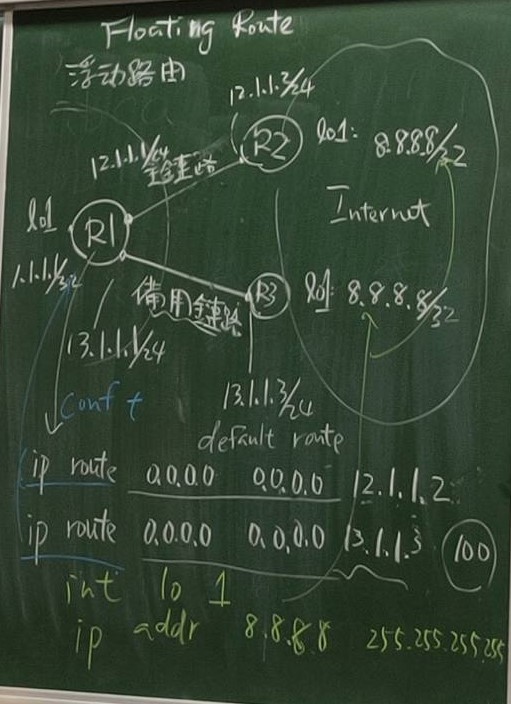 Floating Route
浮动路由
12.1.1.2/24
R2
lo1: 8.8.8.8/32
12.1.1.1/24
主鏈路
Internet
lo1
R1
1.1.1.1/32
備用鏈路
R3
lo1: 8.8.8.8/32
13.1.1.1/24
13.1.1.3/24
Conf t
default route
ip route 0.0.0.0 0.0.0.0 12.1.1.2
ip route 0.0.0.0 0.0.0.0 13.1.1.3 100
int lo 1
ip addr 8.8.8.8 255.255.255.255